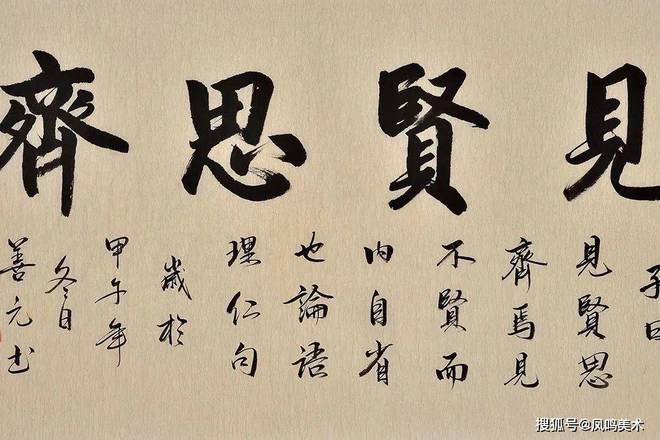 見賢思齊
子曰
見賢思
齊焉見
不賢而
内自省
也論語
理仁句
歲於
甲午年
冬日
善元书
搜狐号@凤鸣美术